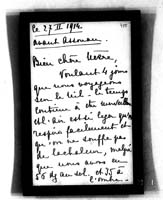 Le 27 II 1914.
avant Assouan.
Bien chère Mère,
Voulant 4 jours
que nous voyageons
sur le Nil. Le temps
continue à être
est. air est si léger qu'on
respire facilement et
que on ne souffre pas
de la chaleur, malgré
que nous avons eu
au sol. et 35 à
l'ombre.